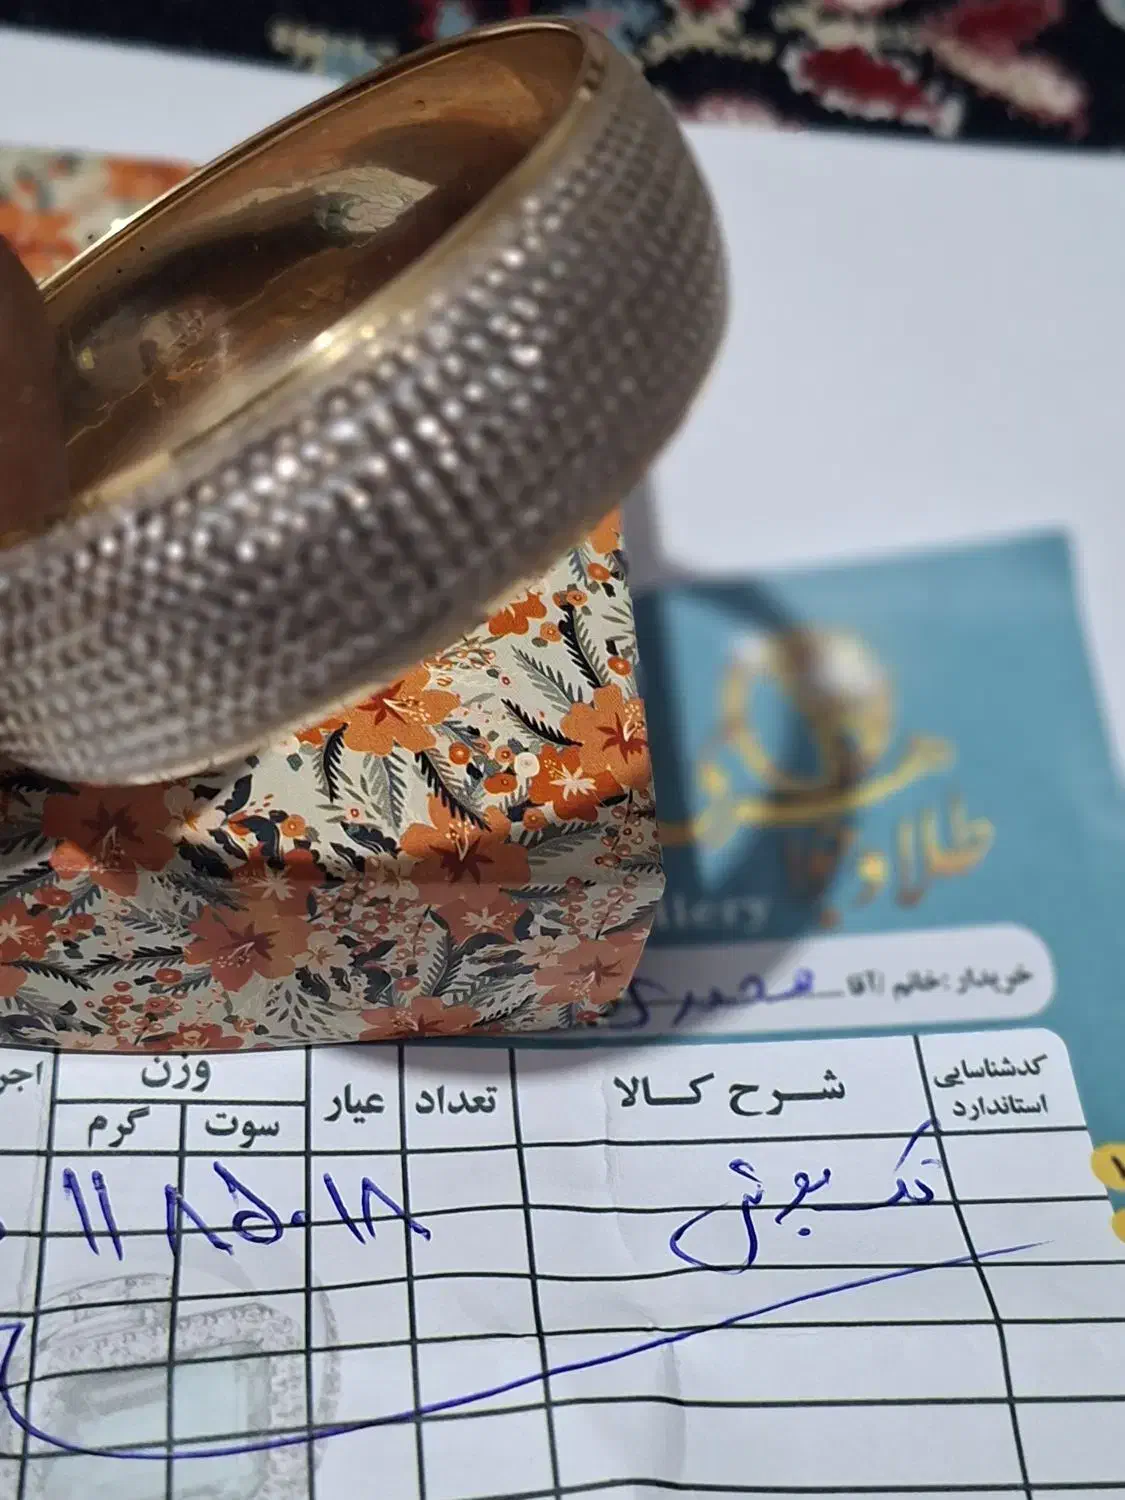 طلا و
llery
خریدار: خانم /آقا
کدشناسایی استاندارد
شرح کالا
تعداد
عیار
وزن
سوت
گرم
تک پوش
۱۸
۸۵۰
۱۱